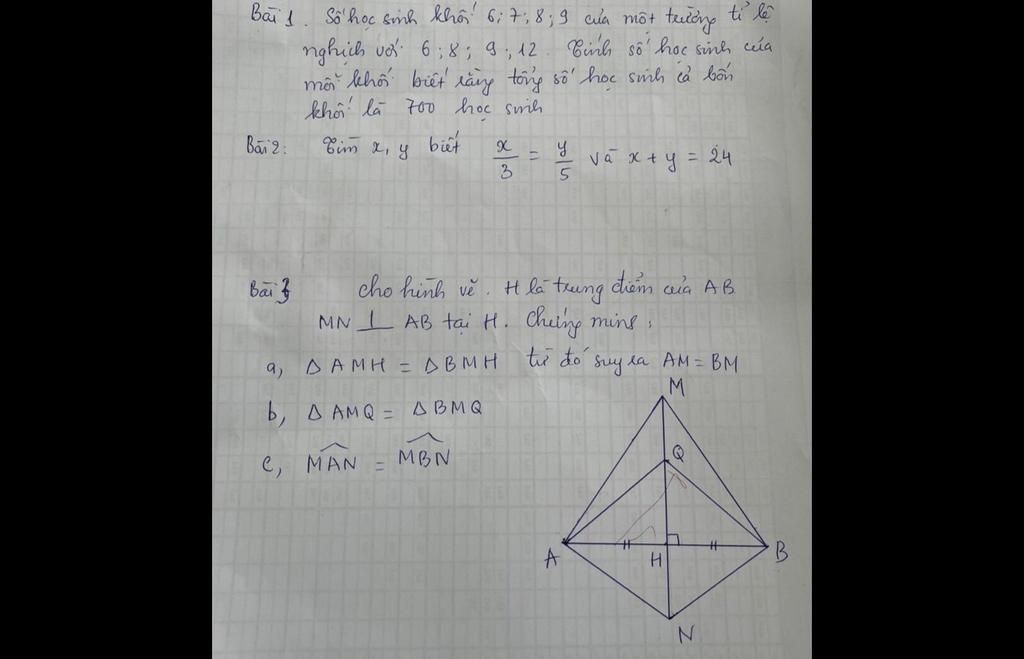 Bài 1. Số học sinh khối 6; 7; 8; 9 của một trường tỉ lệ
nghịch với 6; 8; 9; 12. Tính số học sinh của
mỗi khối biết rằng tổng số học sinh cả bốn
khối là 700 học sinh
Bài 2: Tìm x, y biết x/3 = y/5 và x + y = 24
Bài 3 cho hình vẽ. H là trung điểm của AB.
MN ⊥ AB tại H. Chứng minh:
a, Δ AMH = Δ BMH từ đó suy ra AM = BM
b, Δ AMQ = Δ BMQ
c, \widehat{MAN} = \widehat{MBN}
M
Q
A
H
B
N